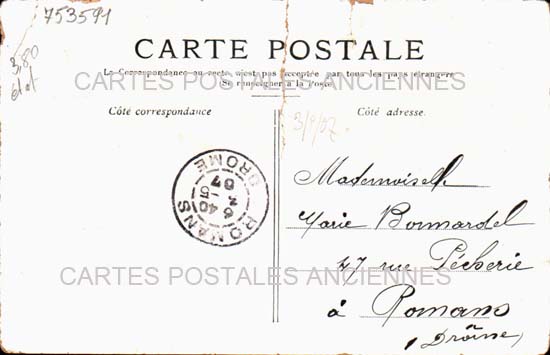 753591
3,80
CARTE POSTALE
La Correspondance au recto n'est pas acceptée par tous les pays étrangers
(Se renseigner à la Poste)
CARTES POSTALES ANCIENNES
Côté correspondance
Côté adresse.
ROMANS
DROME
6 40
5
07
Mademoiselle
Marie Bonnardel
47 rue Pêcherie
à Romans
(Drôme)
CARTES POSTALES ANCIENNES